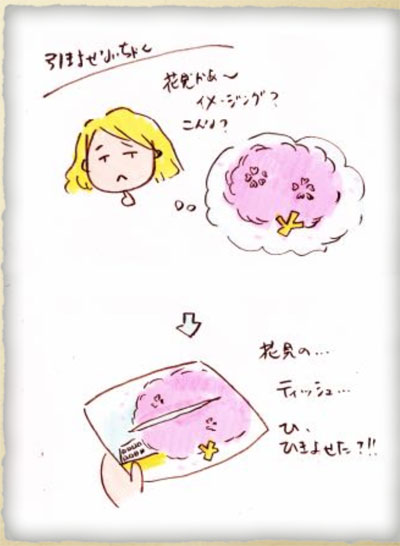 引きよせ
花見かぁ〜
イメージング?
こんな?
花見の...
ティッシュ...
ひ、
ひきよせた?!!